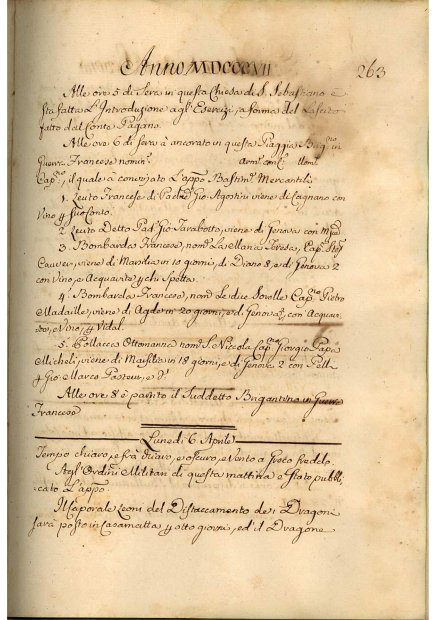 Anno MDCCCVII
263
Alle ore 5 di Sera in questa Chiesa di S. Sebastiano è
sta fatta L'Introduzione agl'Esercizj, a forma del Lascito
fatto dal Conte Pagano.
Alle ore 6 di sera à ancorato in questa Piaggia in
Guerra Francese nomin.
Cap.no, il quale à convojato L'app.o Bastim. Mercantili
1. Leuto Francese di Pad.e Gio Agostini viene di Cagnano con
Vino p suo Conto.
2. Leuto Detto Pad.e Gio Tarabotto, viene di Genova con
3. Bombarda Francese, nom.a La Maria Teresa, Cap.
viene di Marsilia in 10 giorni, di Diano 8, e di Genova 2
con Vino, e Acquavite p chi Spetta.
4. Bombarda Francese, nom.a Le due Sorelle Cap.no Pietro
viene d' 20 giorni, e di Genova, con Acqua
e Vino, p Vidal.
5. Pollacca Ottomanna nom.a S. Niccola Cap.no Giorgio Papa
Micheli, viene di Marsilia in 18 giorni, e di Genova 2 con Pelli
p Gio: Marco Pasteur, e
Alle ore 8 è partito il Suddetto Brigantino in Guerra
Francese
Lunedì 6 Aprile
Tempo chiaro, e frà chiaro, e oscuro, e Vento a Greco freddo.
Agl'Ordini Militari di questa mattina è stato pubbli
cato L'app.o
Il Caporale Leoni del Distaccamento dei Dragoni
sarà posto in Casamatta p otto giorni, ed il Dragone